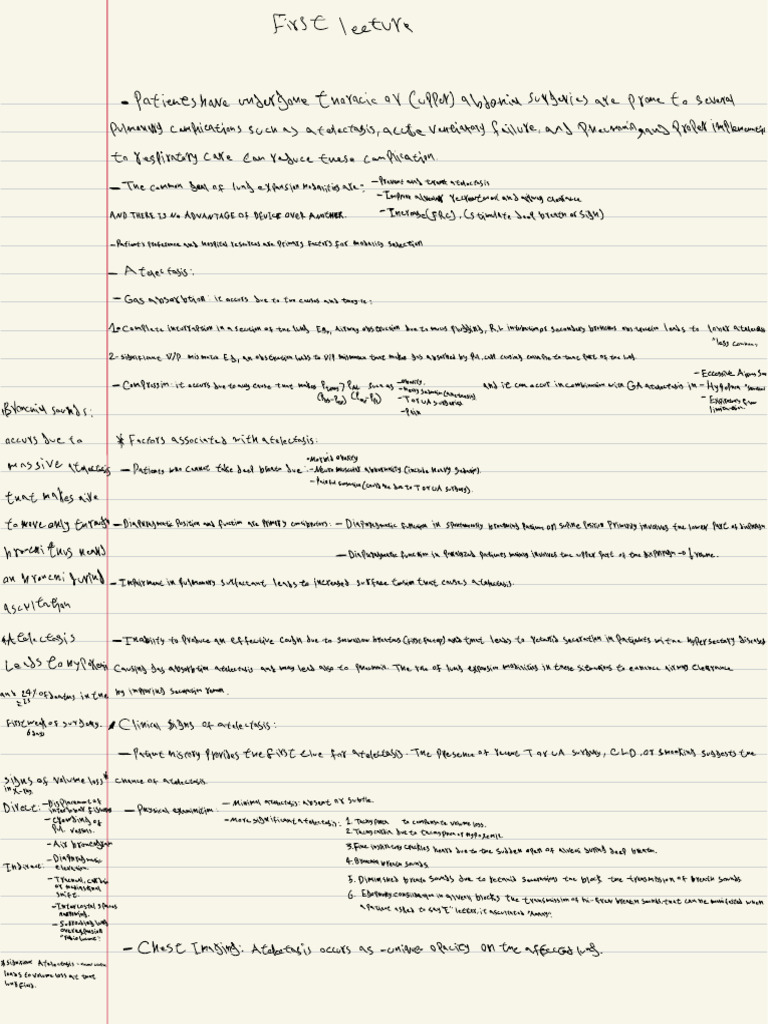 First lecture
- Patients have undergone thoracic or (upper) abdominal surgeries are prone to several
Pulmonary complications such as atelectasis, acute ventilatory failure, and pneumonia, and proper
to respiratory care can reduce these complication.
- The common goal of lung expansion modalities are: - Prevent and treat atelectasis
- Improve alveolar recruitment and airway clearance
AND THERE IS NO ADVANTAGE OF DEVICE OVER ANOTHER. - Increase (FRC), (stimulate deep breath or sigh)
- Patient's preference and hospital resources are primary factors for modality selection
- Atelectasis:
- Gas absorbtion: it occurs due to two causes and they're:
1- Complete interruption in a section of the lung. Eg, Airway obstruction due to mucus plugging, R.L intubation or secondary bronchus obstruction leads to lobar atelectasis
"less common"
2- significant V/P mismatch Eg, an obstruction leads to V/P mismatch that makes gas absorbed by causing collapse to that part of the lung
- Compression: it occurs due to any cause that makes such as - Obesity. and it can occur in combination with GA atelectasis in - Excessive Airway
- Hypoper
- T or UA surgeries - Expiratory flow
- Pain limitation.
Bronchial sounds:
occurs due to
massive atelectasis
that makes air
to move only through
bronchi thus heard
on bronchi during
ascultation
* Factors associated with atelectasis:
- Patients who cannot take deep breath due: - Morbid obesity
- Neuromuscular abnormality (include heavy sedation).
- Painful (could be due to T or UA surgery).
- Diaphragmatic Position and function are primary contributors: - Diaphragmatic function in spontaneously breathing patient on supine position primarily involves the lower part of diaphragm
- Diaphragmatic function in paralyzed patients mainly involves the upper part of the diaphragm
- Impairment in pulmonary surfactant leads to increased surface tension that causes atelectasis.
- Inability to produce an effective cough due to and that leads to retained secretion in patients with hypersecretory diseases
Causing gas absorption atelectasis and may lead also to pneumonia. The role of lung expansion modalities in these situations to enhance airway clearance
by improving secretion removal.
*Atelectasis
Leads to hypoxemia
and 24% of deaths in the
≥25
First week of surgery.
6 days
* Clinical signs of atelectasis:
- Patient history provides the first clue for atelectasis. The presence of recent T or UA surgery, CLD, or smoking suggests the
chance of atelectasis.
- Physical examination: - Minimal atelectasis: absent or subtle.
- More significant atelectasis: 1. Tachypnea to compensate volume loss.
2. Tachycardia due to tachypnea or Hypoxemia.
3. Fine inspiratory crackles heard due to the sudden open of alveoli during deep breath.
4. Bronchial breath sounds
5. Diminished breath sounds due to retained secretions the block the transmission of breath sounds
6. Egophony consolidation in alveoli blocks the transmission of hi-freq breath sounds that can be manifested when
a patient asked to say "E" letter, it ascultated
signs of volume loss *
in X-ray
Direct: - Displacement of
interlobar fissures
- crowding of
Pul. vessels.
- Air bronchogram
Indirect: - Diaphragmatic
elevation.
- Tracheal, cardiac
or mediastinal
shift.
- Intercostal spaces
narrowing.
- Surrounding lung
overexpansion
- Chest Imaging: Atelectasis occurs as opacity on the affected lung.
leads to volume loss at that
lung field.